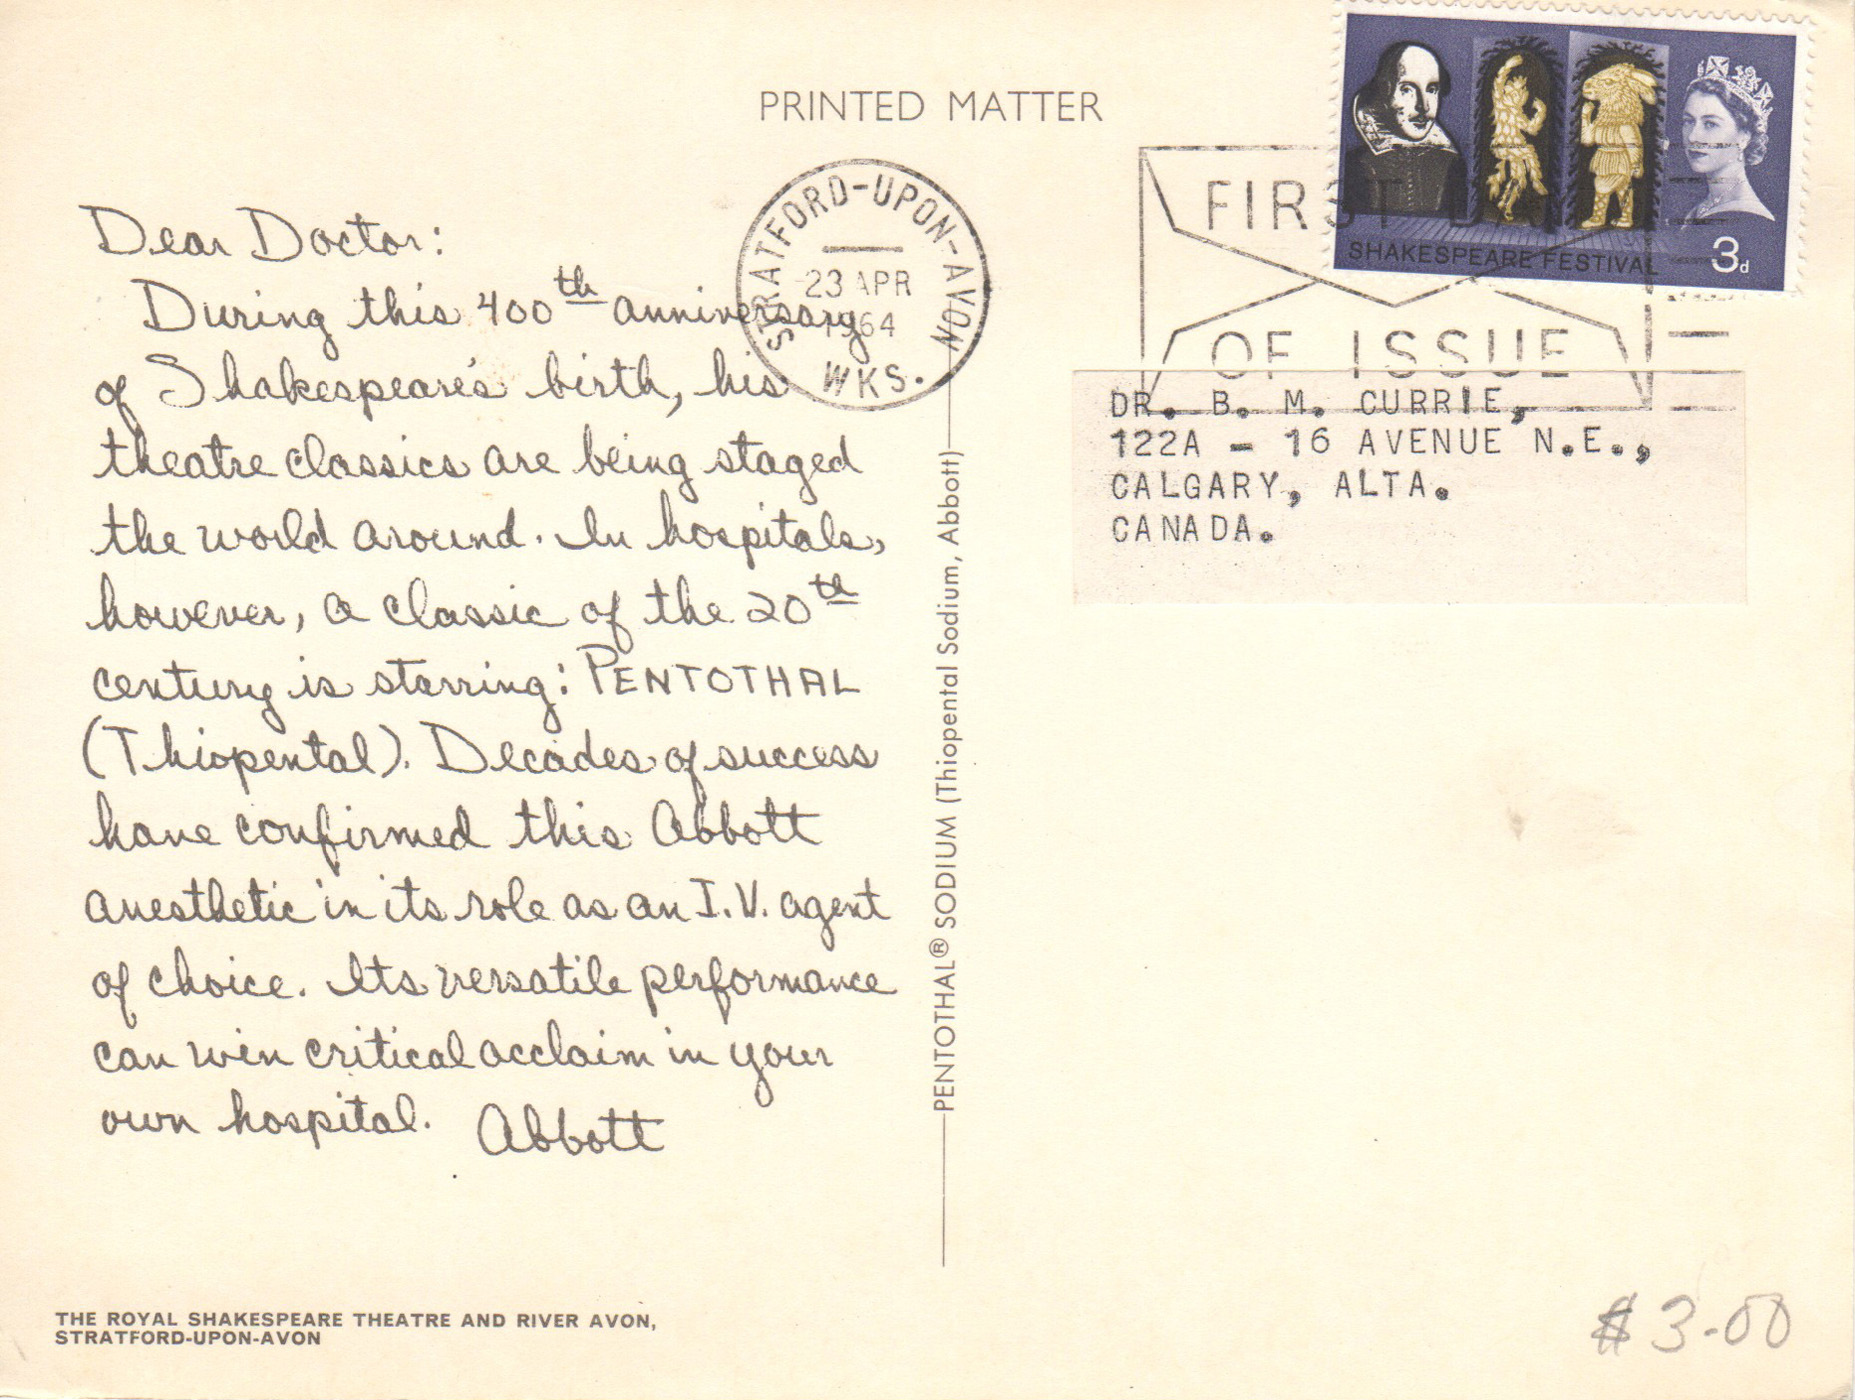 PRINTED MATTER
SHAKESPEARE FESTIVAL 3d
STRATFORD-UPON-AVON
23 APR
1964
WKS.
FIRST DAY
OF ISSUE
Dear Doctor:
During this 400th anniversary
of Shakespeare's birth, his
theatre classics are being staged
the world around. In hospitals,
however, a classic of the 20th
century is starring: PENTOTHAL
(Thiopental). Decades of success
have confirmed this Abbott
anesthetic in its role as an I.V. agent
of choice. Its versatile performance
can win critical acclaim in your
own hospital. Abbott
PENTOTHAL® SODIUM (Thiopental Sodium, Abbott)
DR. B. M. CURRIE,
122A - 16 AVENUE N.E.,
CALGARY, ALTA.
CANADA.
THE ROYAL SHAKESPEARE THEATRE AND RIVER AVON,
STRATFORD-UPON-AVON
$3.00